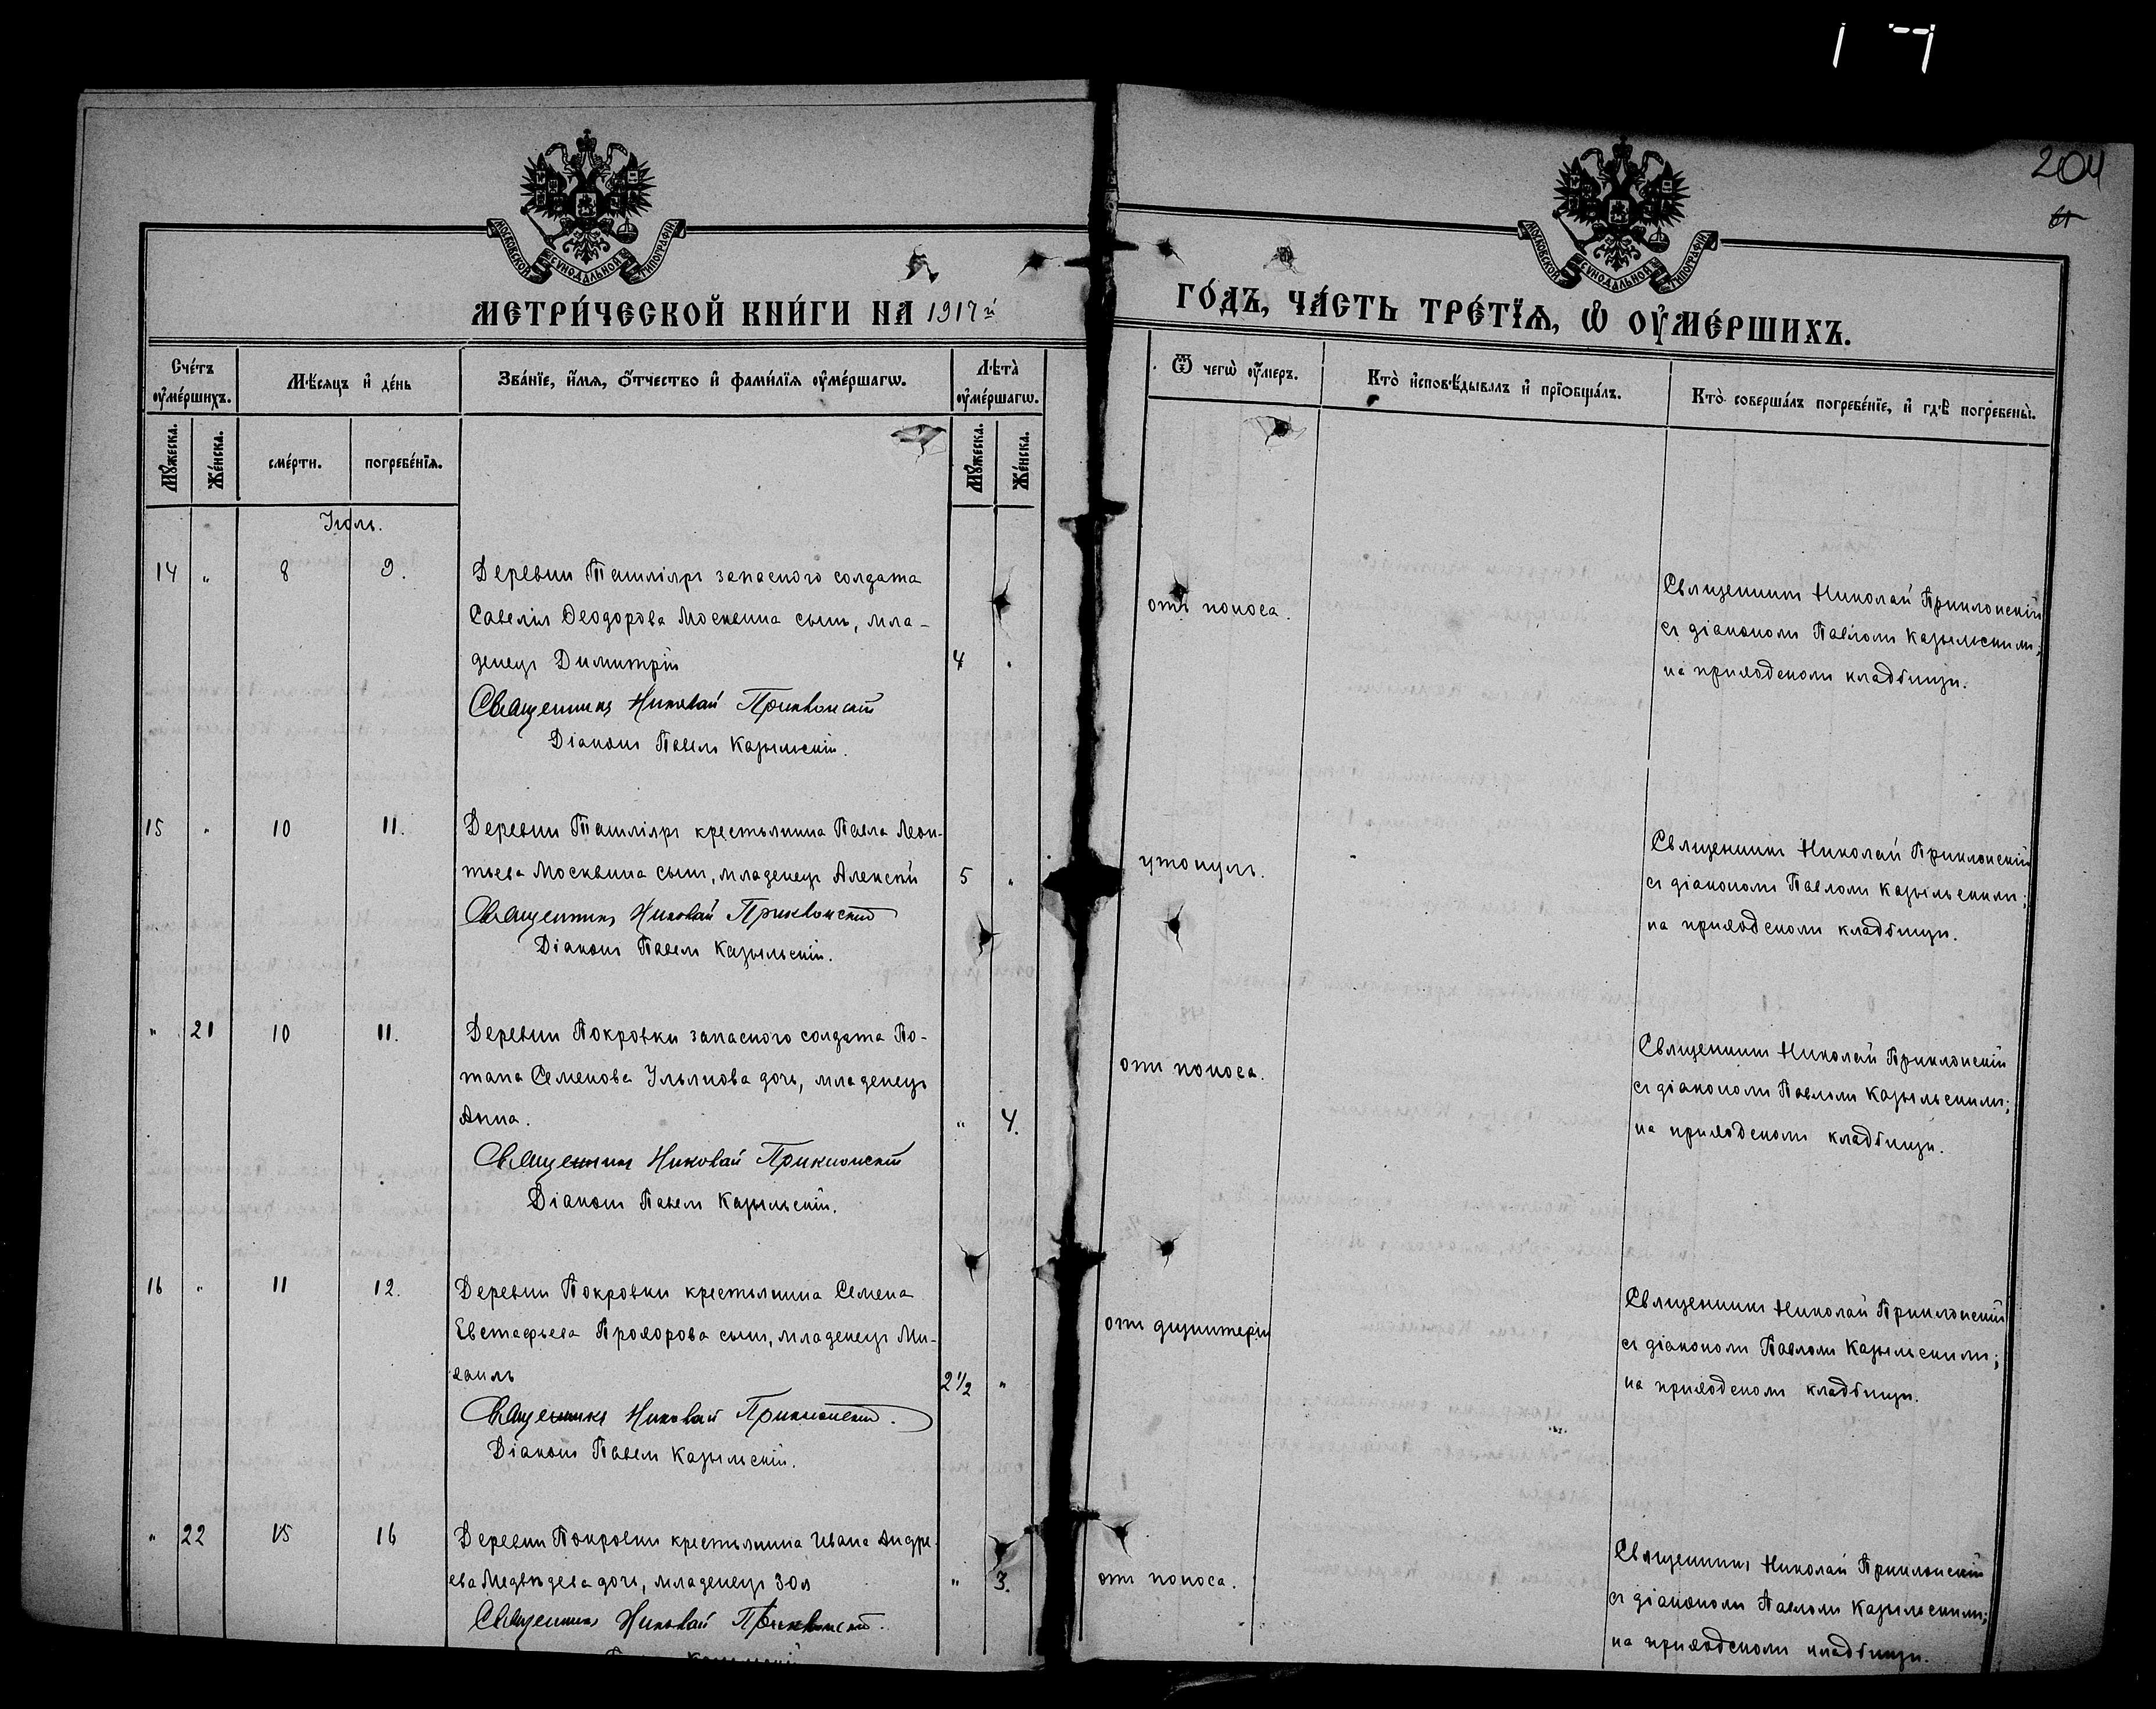 204
МОСКОВСКОЙ СУНОДАЛЬНОЙ ТИПОГРАФІИ
МОСКОВСКОЙ СУНОДАЛЬНОЙ ТИПОГРАФІИ
МЕТРИ́ЧЕСКОЙ КНИ́ГИ НА 1917й
ГО́ДЪ, ЧА́СТЬ ТРЕ́ТЇѦ, Ѽ ОУ҆МЕ́РШИХЪ.
Сче́тъ оу҆ме́ршихъ.
Мѣ́сяцъ и҆ де́нь
Зва́нїе, и҆́мя, ѻ҆́тчество и҆ фами́лїя оу҆ме́ршагѡ.
Лѣта̀ оу҆ме́ршагѡ.
Ѿ чегѡ̀ оу҆́меръ.
Кто̀ и҆сповѣ́дывалъ и҆ прїѻбща́лъ.
Кто̀ соверша́лъ погребе́нїе, и҆ гдѣ̀ погребены̀.
Му́жеска.
Же́нска.
сме́рти.
погребе́нїя.
Му́жеска.
Же́нска.
Іюль.
14 " 8 9.
Деревни Ташлiяръ запасного солдата
Савелія Ѳеодорова Москвина сынъ, мла-
денецъ Димитрій 4 "
Священникъ Николай Приклонскій
Діаконъ Павелъ Казыльскій.
отъ поноса.
Священникъ Николай Приклонскій
съ діакономъ Павломъ Казыльскимъ;
на приходскомъ кладбищѣ.
15 " 10 11.
Деревни Ташлiяръ крестьянина Павла Леон-
тьева Москвина сынъ, младенецъ Алексѣй 5 "
Священникъ Николай Приклонскій
Діаконъ Павелъ Казыльскій.
утонулъ.
Священникъ Николай Приклонскій
съ діакономъ Павломъ Казыльскимъ;
на приходскомъ кладбищѣ.
" 21 10 11.
Деревни Покровки запасного солдата По-
тапа Семенова Ульянова дочь, младенецъ
Анна. " 4.
Священникъ Николай Приклонскій
Діаконъ Павелъ Казыльскій.
отъ поноса.
Священникъ Николай Приклонскій
съ діакономъ Павломъ Казыльскимъ;
на приходскомъ кладбищѣ.
16 " 11 12.
Деревни Покровки крестьянина Семена
Евстафьева Прохорова сынъ, младенецъ Ми-
хаилъ 2 1/2 "
Священникъ Николай Приклонскій.
Діаконъ Павелъ Казыльскій.
отъ дизинтеріи
Священникъ Николай Приклонскій
съ діакономъ Павломъ Казыльскимъ;
на приходскомъ кладбищѣ.
" 22 15 16
Деревни Покровки крестьянина Ивана Андре-
ева Медвѣдева дочь, младенецъ Зоя " 3.
Священникъ Николай Приклонскій.
отъ поноса.
Священникъ Николай Приклонскій
съ діакономъ Павломъ Казыльскимъ;
на приходскомъ кладбищѣ.